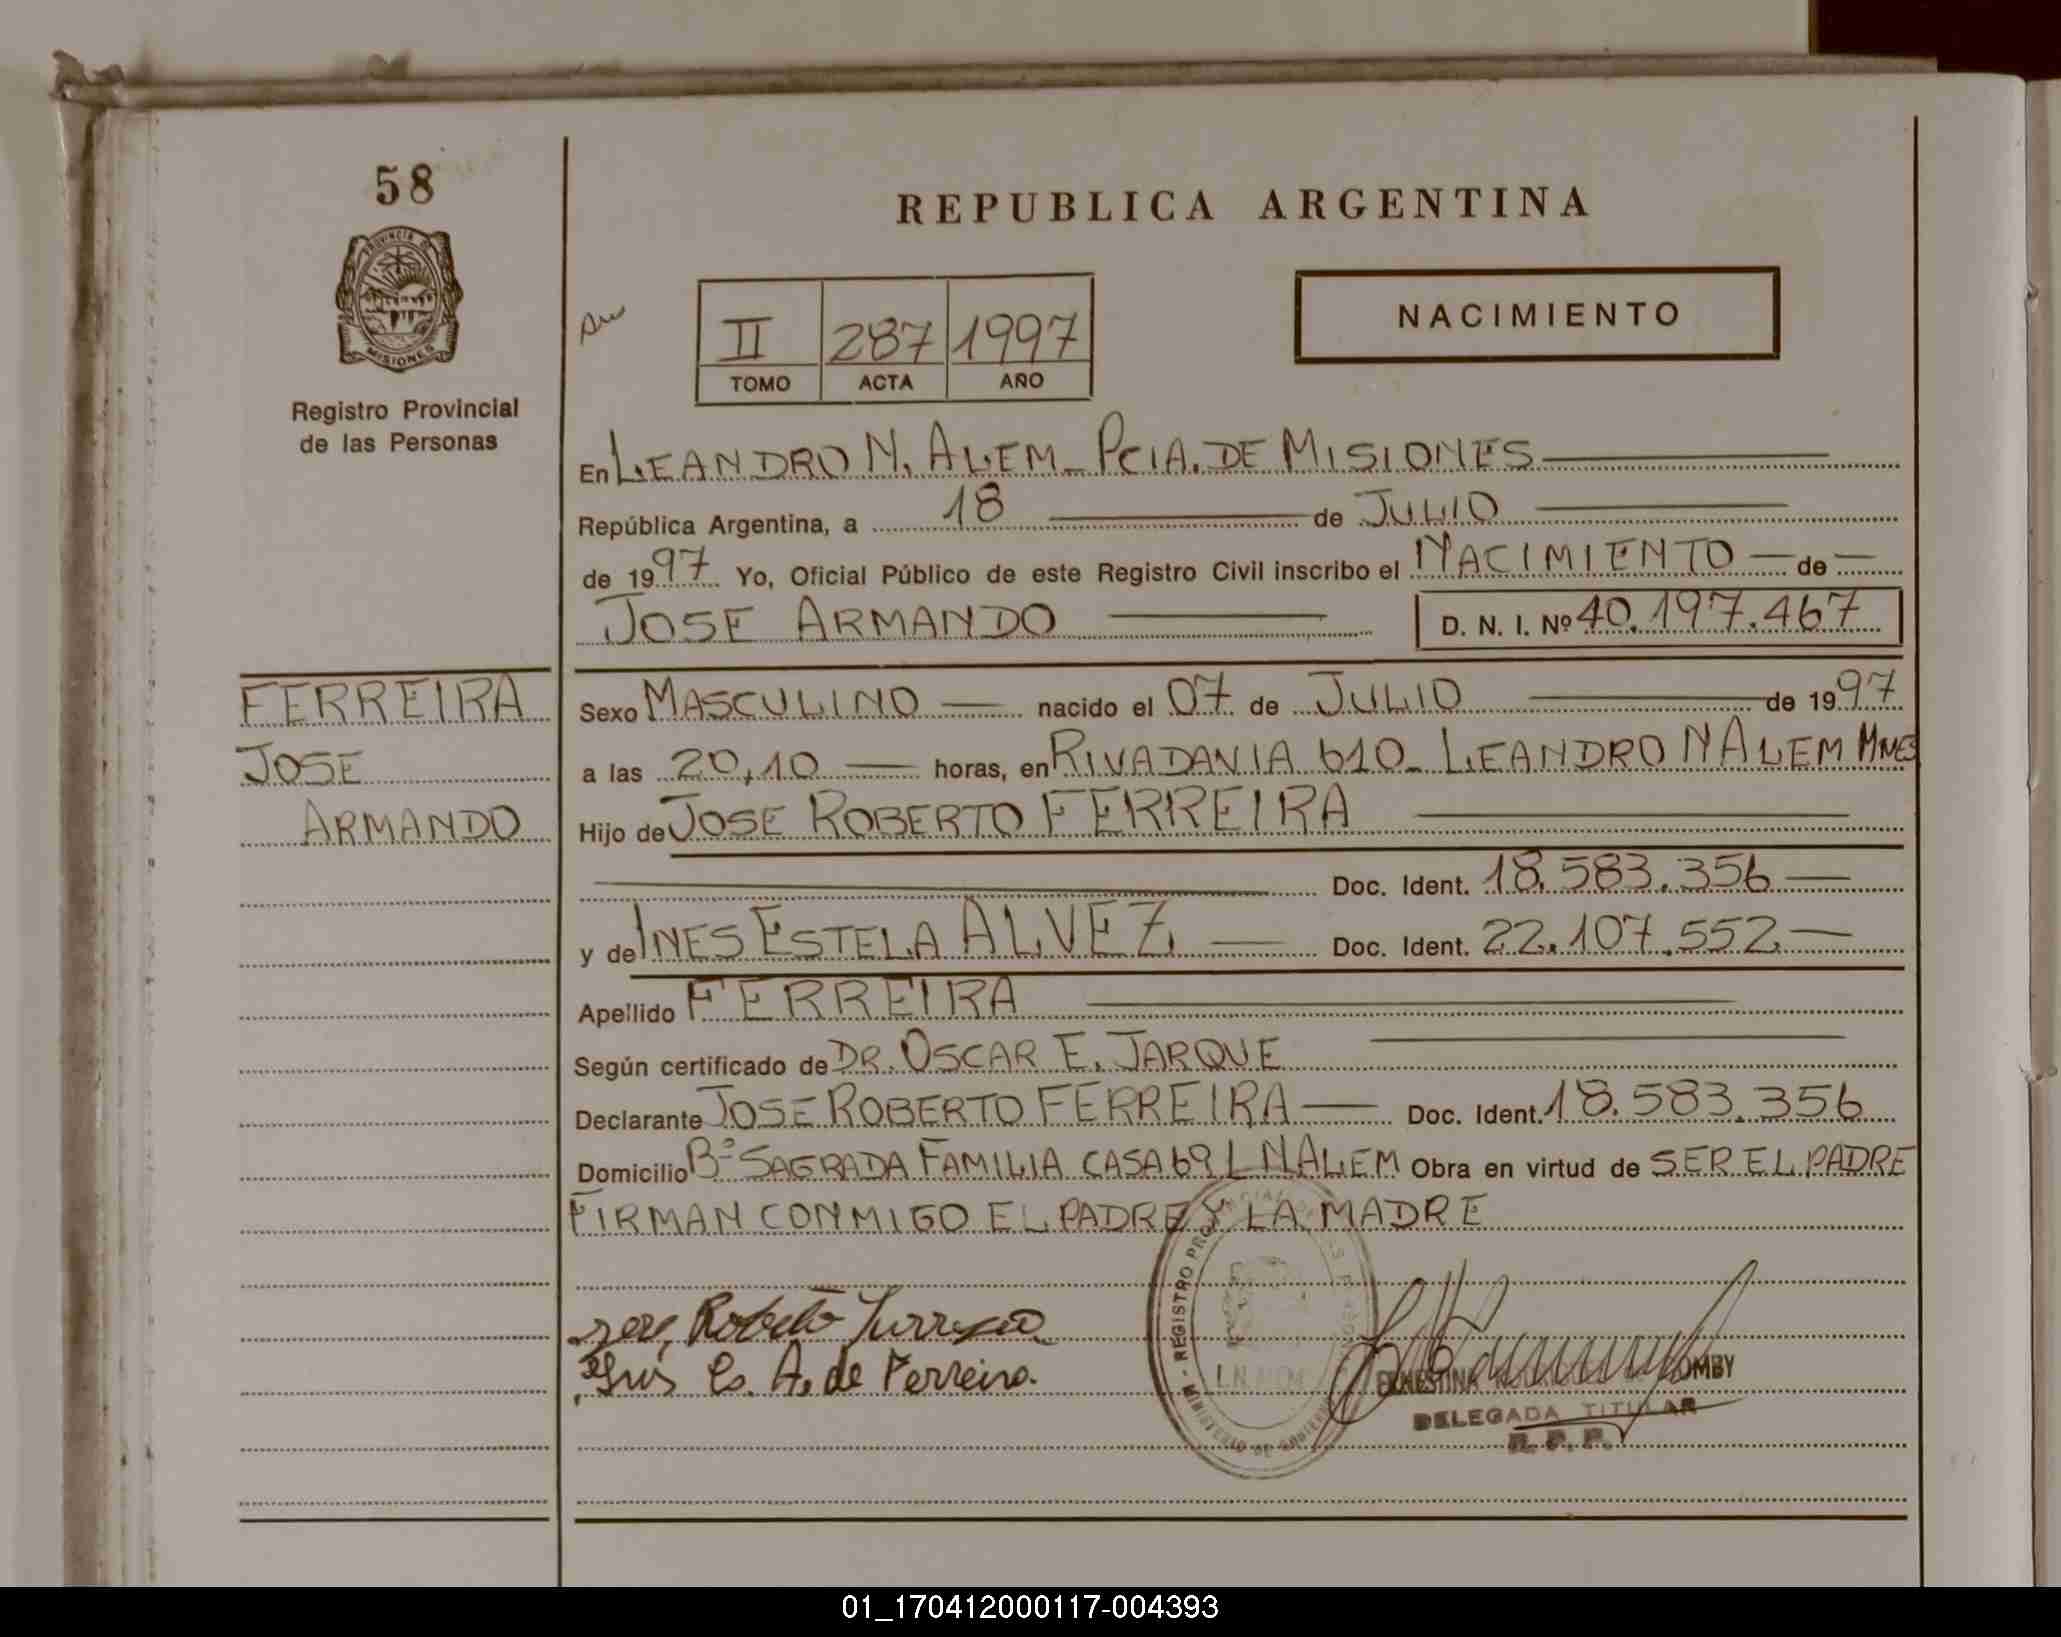 58
REPUBLICA ARGENTINA
PROVINCIA DE
MISIONES
Registro Provincial
de las Personas
II 287 1997
TOMO ACTA AÑO
NACIMIENTO
En LEANDRO N. ALEM_ PCIA. DE MISIONES
República Argentina, a 18 de JULIO
de 1997 Yo, Oficial Público de este Registro Civil inscribo el NACIMIENTO de
JOSE ARMANDO D. N. I. Nº 40.197.467
FERREIRA
JOSE
ARMANDO
Sexo MASCULINO nacido el 07 de JULIO de 1997
a las 20,10 horas, en RIVADAVIA 610_ LEANDRO N ALEM MNES
Hijo de JOSE ROBERTO FERREIRA
Doc. Ident. 18.583.356
y de INES ESTELA ALVEZ Doc. Ident. 22.107.552
Apellido FERREIRA
Según certificado de DR. OSCAR E. JARQUE
Declarante JOSE ROBERTO FERREIRA Doc. Ident. 18.583.356
Domicilio Bº SAGRADA FAMILIA CASA 69 L N ALEM Obra en virtud de SER EL PADRE
FIRMAN CONMIGO EL PADRE Y LA MADRE
Jose, Roberto Ferreira
Ines Es. A. de Ferreira.
MINISTERIO DE GOBIERNO - REGISTRO PROVINCIAL
ERNESTINA
DELEGADA TITULAR
R. P. P.
01_170412000117-004393